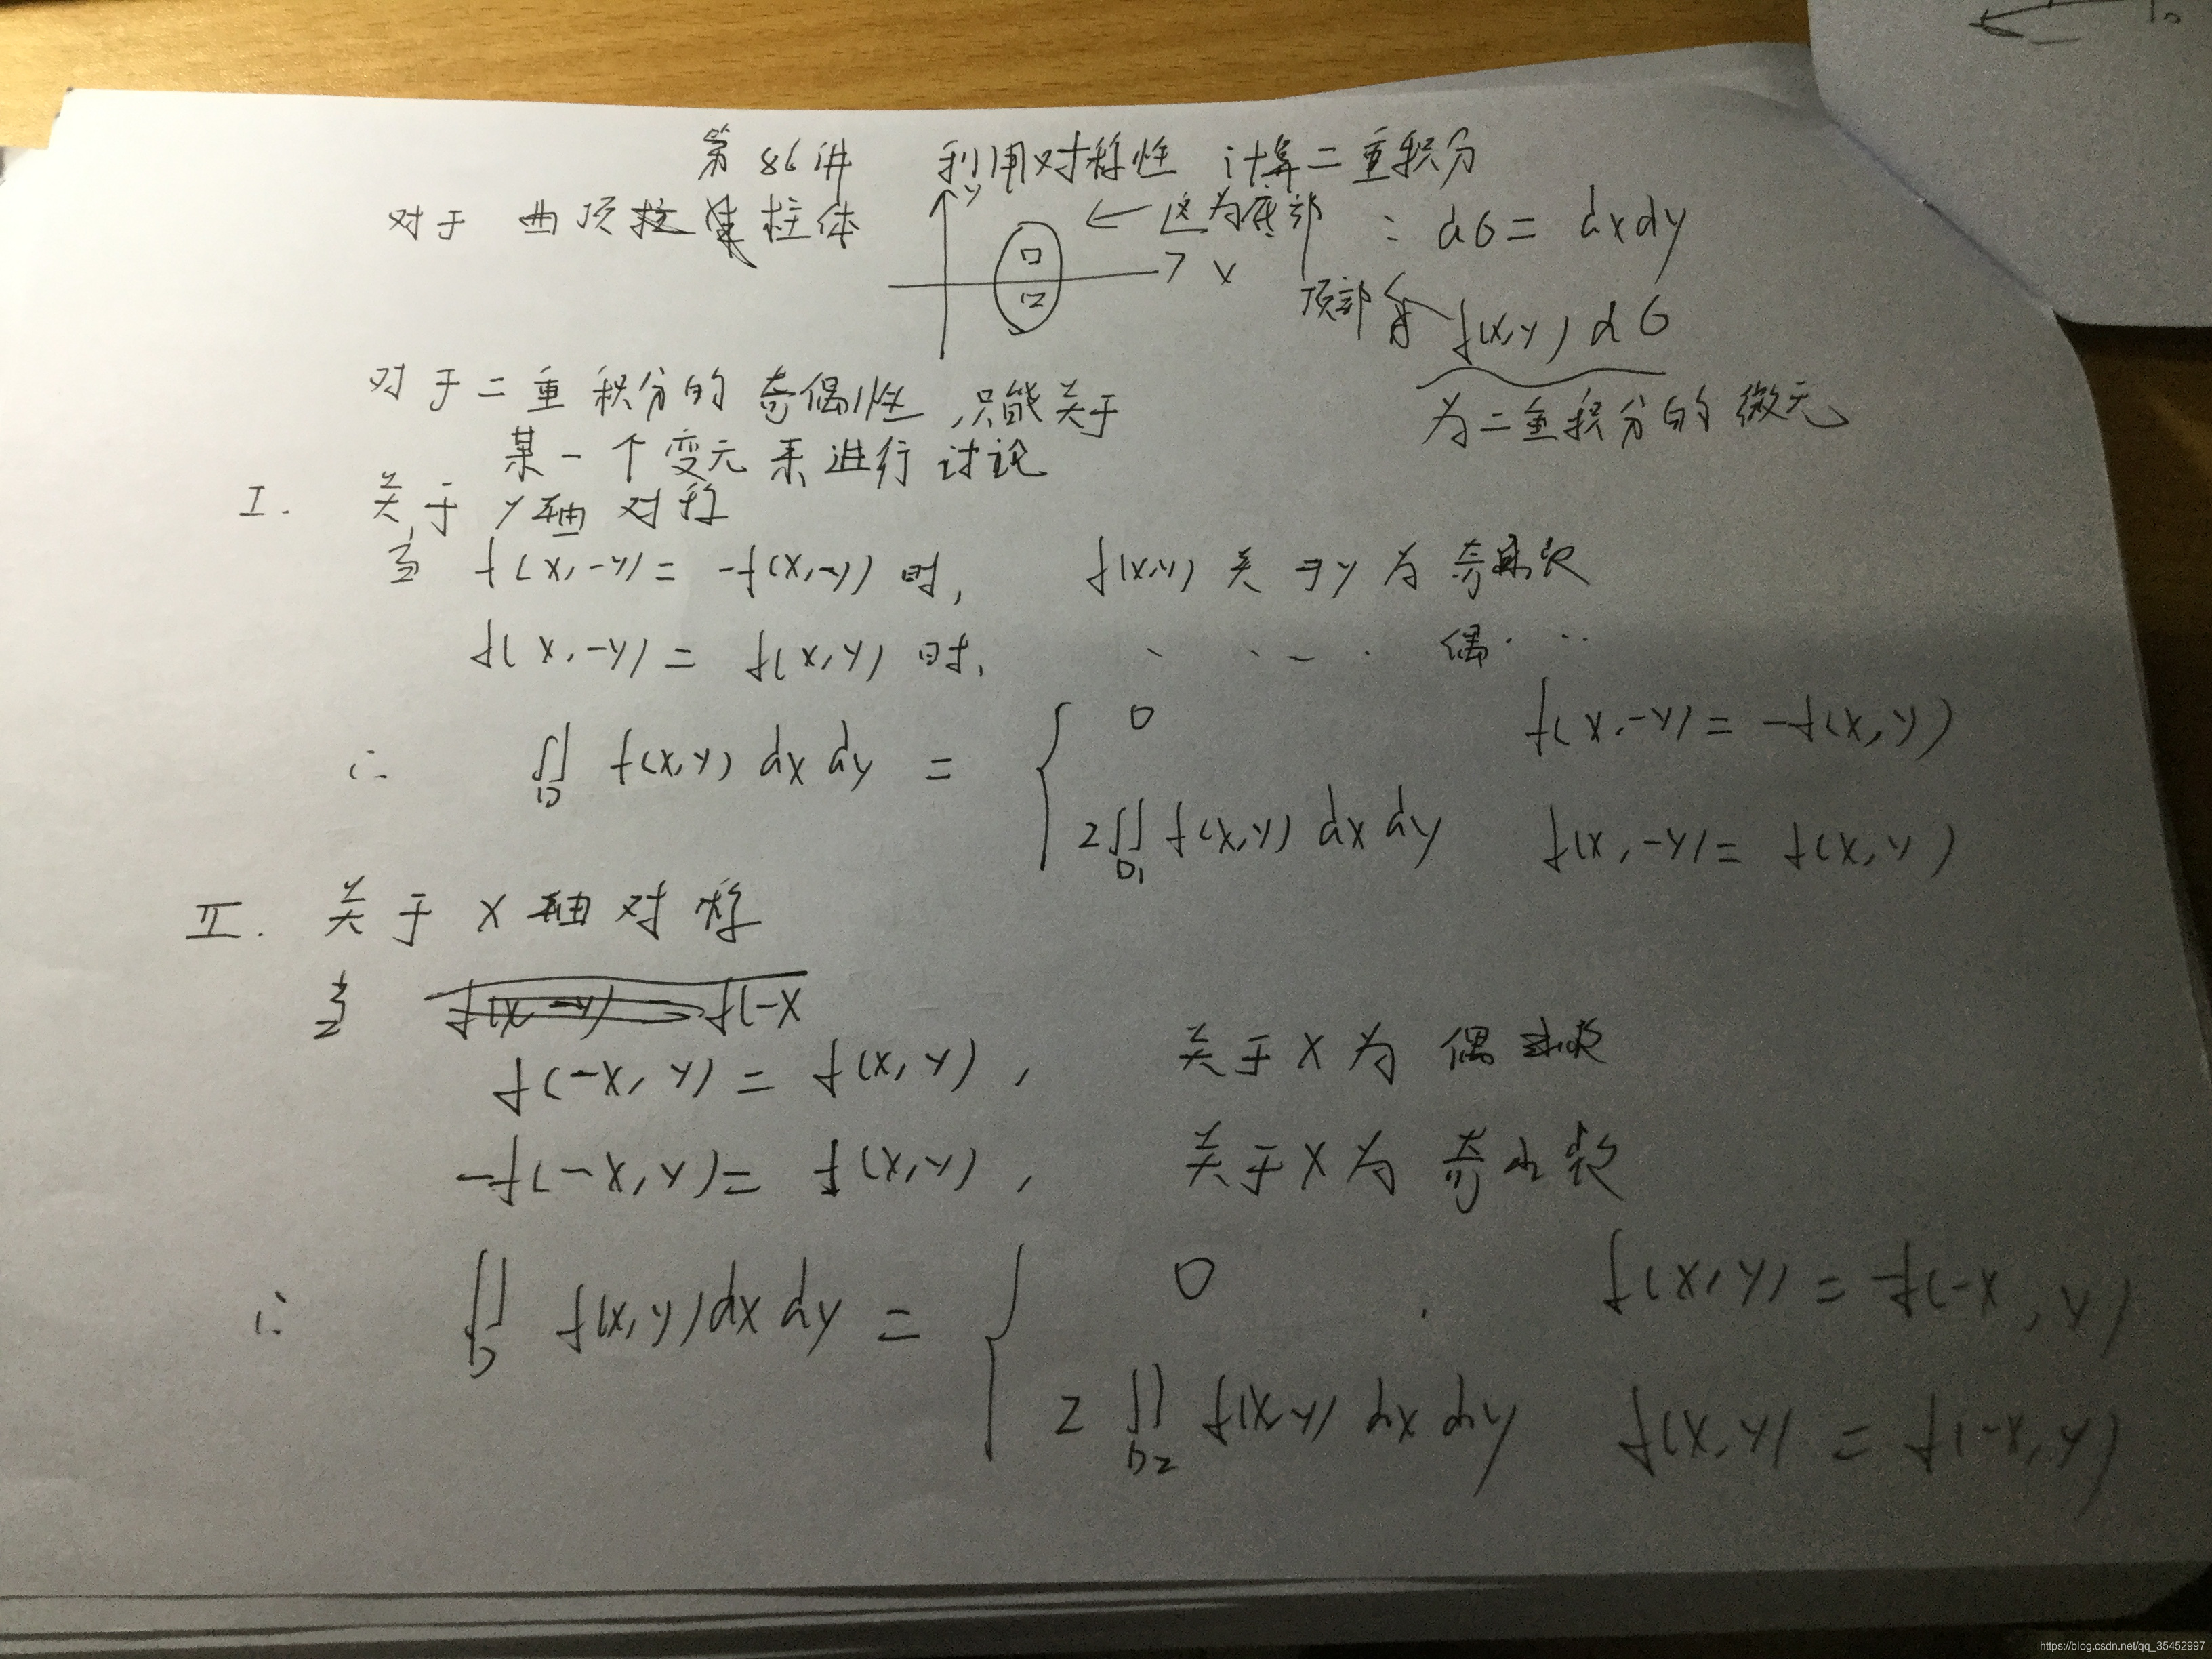 第86讲 利用对称性 计算二重积分
对于 曲顶柱体 y ← 这为底部 : dσ = dxdy
x 顶部 f(x,y) dσ
为二重积分的微元
对于二重积分的奇偶性,只能关于
某一个变元来进行讨论
I. 关于y轴对称
当 f(x,-y) = -f(x,y) 时, f(x,y) 关于y为奇函数
f(x,-y) = f(x,y) 时, 偶
∴ ∬D f(x,y) dx dy = { 0 f(x,-y) = -f(x,y)
2∬D1 f(x,y) dx dy f(x,-y) = f(x,y)
II. 关于x轴对称
当 f(x,-y) f(-x
f(-x,y) = f(x,y), 关于x为偶函数
-f(-x,y) = f(x,y), 关于x为奇函数
∴ ∬D f(x,y)dx dy = { 0 . f(x,y) = -f(-x,y)
2∬D2 f(x,y) dx dy f(x,y) = f(-x,y)
https://blog.csdn.net/qq_35452997